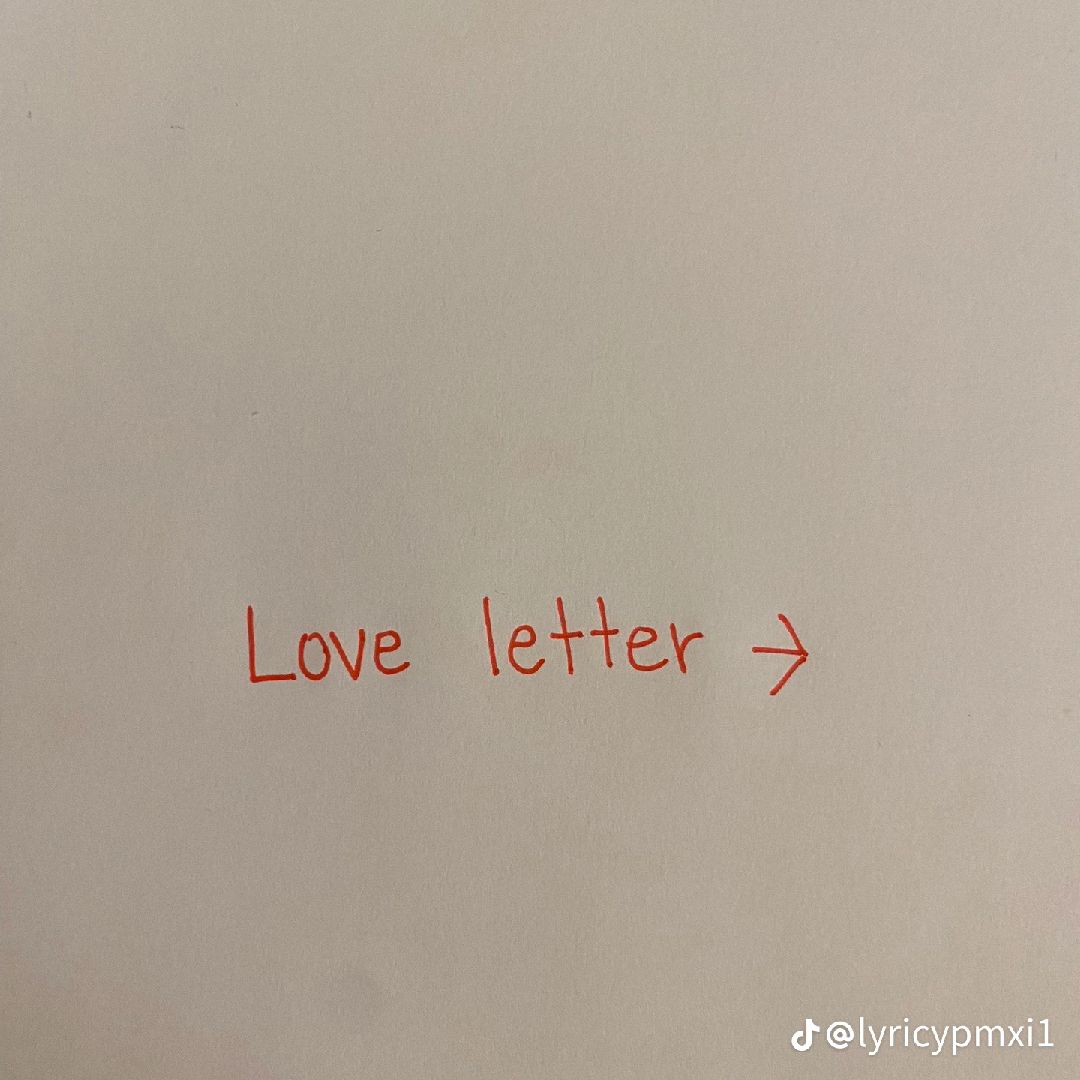 Love letter →
@lyricypmxi1